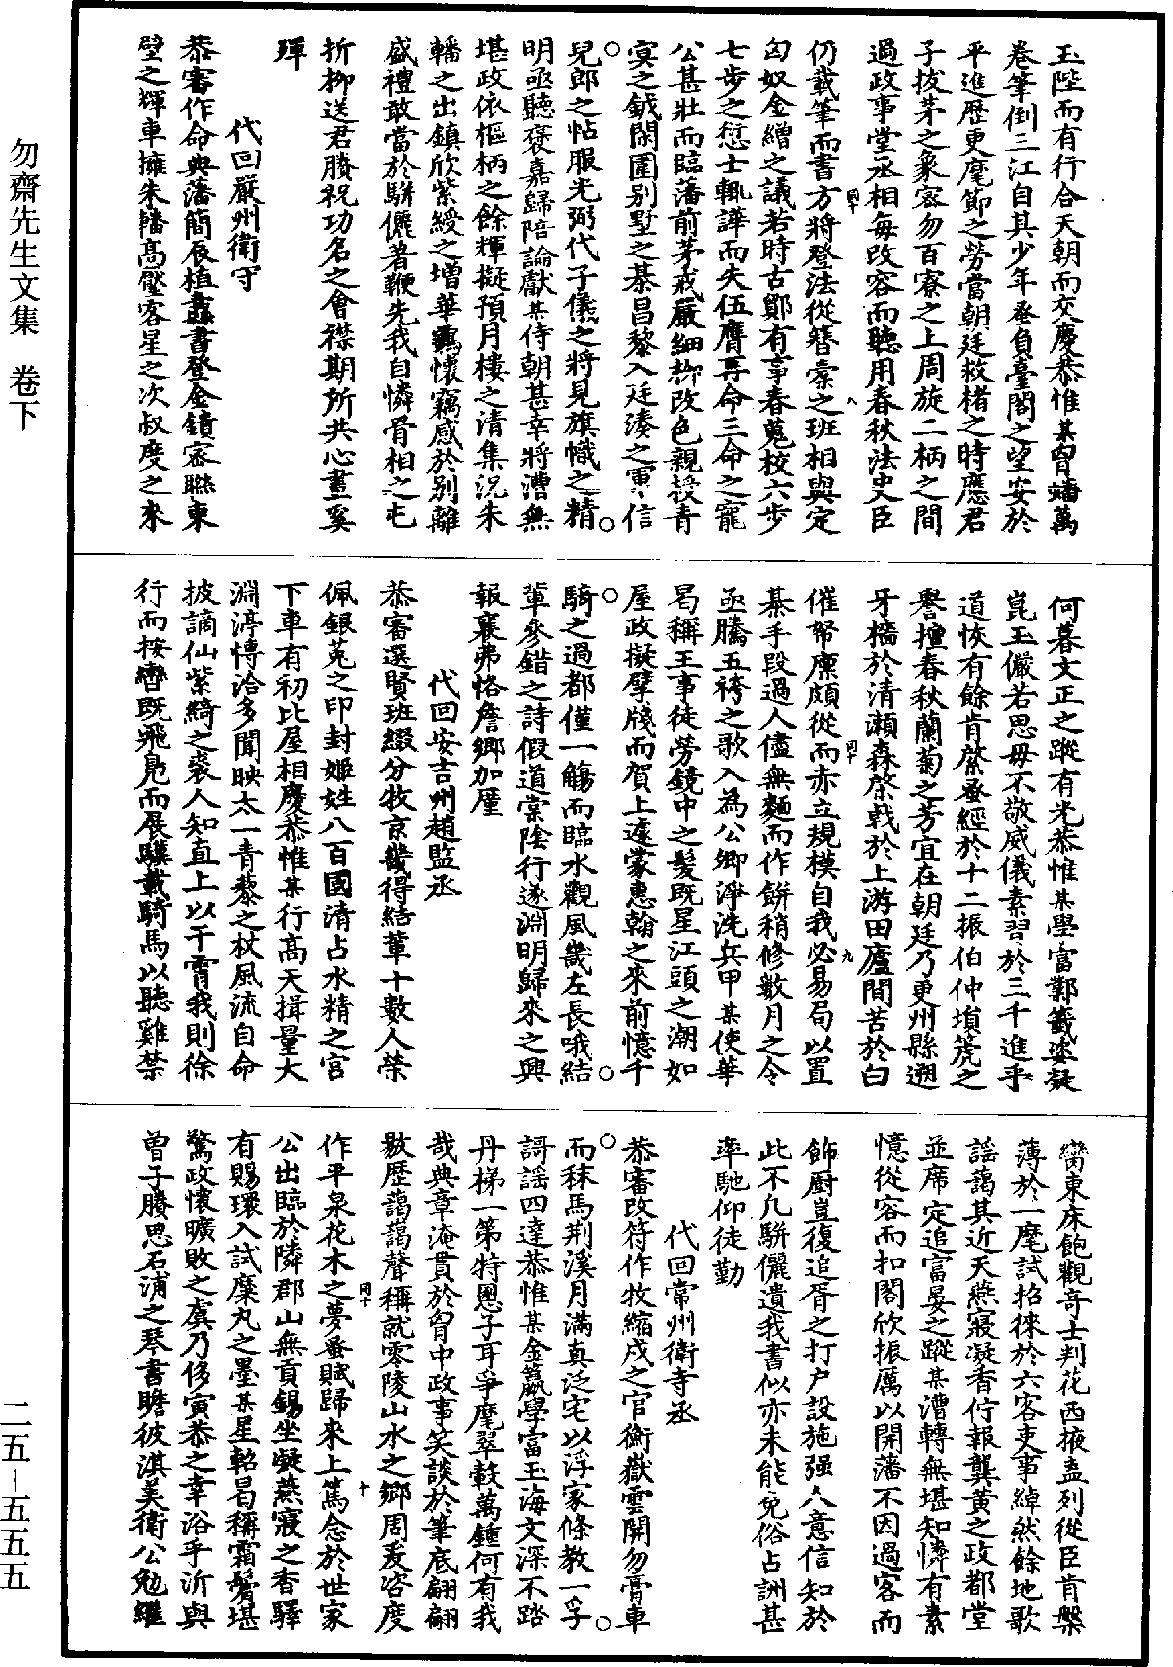 玉陛而有行合天朝而交慶恭惟某胷蟠萬
卷筆倒三江自其少年登負臺閣之望安於
平進歷更麾節之勞當朝廷救楮之時應君
子拔茅之象密勿百寮之上周旋二柄之間
過政事堂丞相每改容而聽用春秋法史臣
仍載筆而書方將登法從簪橐之班相與定
匈奴金繒之議若時古鄮有事春蒐校六步
七步之愆士輒譁而失伍膺再命三命之寵
公甚壯而臨藩前茅戒嚴細柳改色親授青
㝠之鉞閑圍别墅之棊昌黎入廷湊之軍信
兒郎之怗服光弼代子儀之將見旗幟之精
明亟聽褒嘉歸陪論獻某侍朝甚幸將漕無
堪政依樞柄之餘輝擬預月樓之清集況朱
轓之出鎮欣紫綬之增華羈懷竊感於别離
盛禮敢當於駢儷著鞭先我自憐骨相之屯
折柳送君賸祝功名之會襟期所共心畫奚
殫
代回嚴州衛守
恭審作命與藩簡辰植纛書登金鏡密聮東
壁之輝車擁朱轓高壓客星之次叔度之來
何暮文正之蹤有光恭惟某學富鄴籤姿凝
崑玉儼若思毋不敬威儀素習於三千進乎
道恢有餘肯綮蚤經於十二振伯仲塤箎之
譽擅春秋蘭菊之芳宜在朝廷乃更州縣遡
牙檣於清瀬森棨戟於上游田廬間苦於白
催帑廪頗從而亦立規模自我必易局以置
棊手段過人儘無麵而作餅稍修數月之令
亟騰五袴之歌入為公卿淨洗兵甲某使華
曷稱王事徒勞鏡中之髪既星江頭之潮如
屋政擬擘牋而賀上遽蒙惠翰之來前憶千
騎之過都僅一觴而臨水觀風畿左長哦結
軰參錯之詩假道棠陰行遂淵明歸來之興
報襄弗恪詹鄉加厪
代回安吉州趙監丞
恭審選賢班綴分牧京畿得結輩十數人榮
佩銀菟之印封姬姓八百國清占水精之宮
下車有初比屋相慶恭惟某行高天揖量大
淵渟愽洽多聞映太一青藜之杖風流自命
披謫仙紫綺之裘人知直上以干霄我則徐
行而按轡既飛舄而展驥載騎馬以聽雞禁
臠東床飽觀奇士判花西掖盍列從臣肯槃
薄於一麾試招徠於六客吏事綽然餘地歌
謡藹其近天燕寢凝香佇報龔黄之政都堂
並席定追富晏之蹤某漕轉無堪知憐有素
憶從容而扣閣欣振厲以開藩不因過客而
飾厨豈復追胥之打户設施强人意信知於
此不凡駢儷遺我書似亦未能免俗占詶甚
率馳仰徒勤
代回常州衛寺丞
恭審改符作牧縮戍之官衡嶽雲開勿膏車
而秣馬荆溪月滿真泛宅以浮家條教一孚
謌謡四達恭惟某金籯學富玉海文深不踏
丹梯一第特恩子耳爭麾翠轂萬鍾何有我
哉典章淹貫於胷中政事笑談於筆底翩翩
敭歷藹藹聲稱就零陵山水之鄉周爰咨度
作平泉花木之夢蚤賦歸來上篤念於世家
公出臨於隣郡山無貢錫坐凝燕寢之香驛
有賜環入試糜丸之墨某星軺曷稱霜鬢堪
驚政懷曠敗之虞乃修寅恭之幸浴乎沂與
曾子賸思石浦之琴書瞻彼淇美衛公勉繼
同十
八
同十
九
同十
十
勿齋先生文集 卷下
二五－五五五